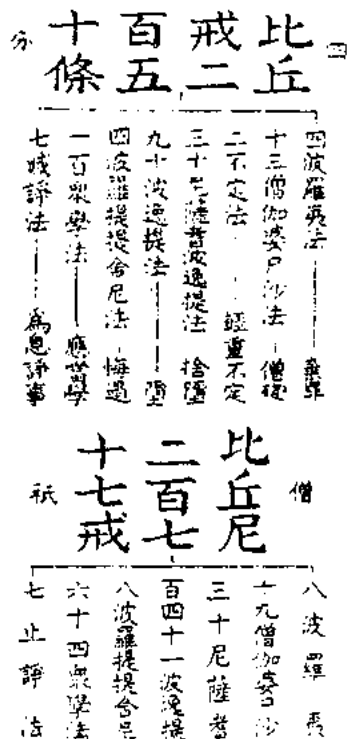 四分
比丘
戒二
百五
十條
四波羅夷法——棄罪
十三僧伽婆尸沙法——僧殘
二不定法——輕重不定
三十尼薩耆波逸提法——捨墮
九十波逸提法——墮
四波羅提提舍尼法——悔過
一百眾學法——應當學
七滅諍法——為息諍事
僧祇
比丘尼
二百七
十七戒
八波羅夷
十九僧伽婆尸沙
三十尼薩耆
百四十一波逸提
八波羅提提舍尼
六十四眾學法
七止諍法